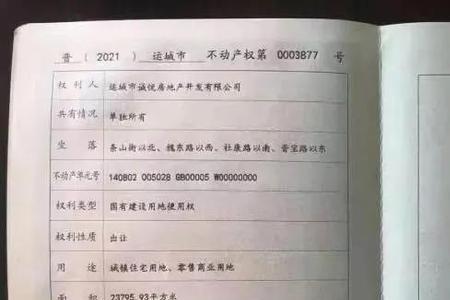 晋（2021）运城市 不动产权第 0003877 号
权利人 运城市诚悦房地产开发有限公司
共有情况 单独所有
坐落 条山街以北、魏东路以西、社康路以南、晋宝路以东
不动产单元号 140802 005028 GB00005 W00000000
权利类型 国有建设用地使用权
权利性质 出让
用途 城镇住宅用地、零售商业用地
面积 23795.93平方米